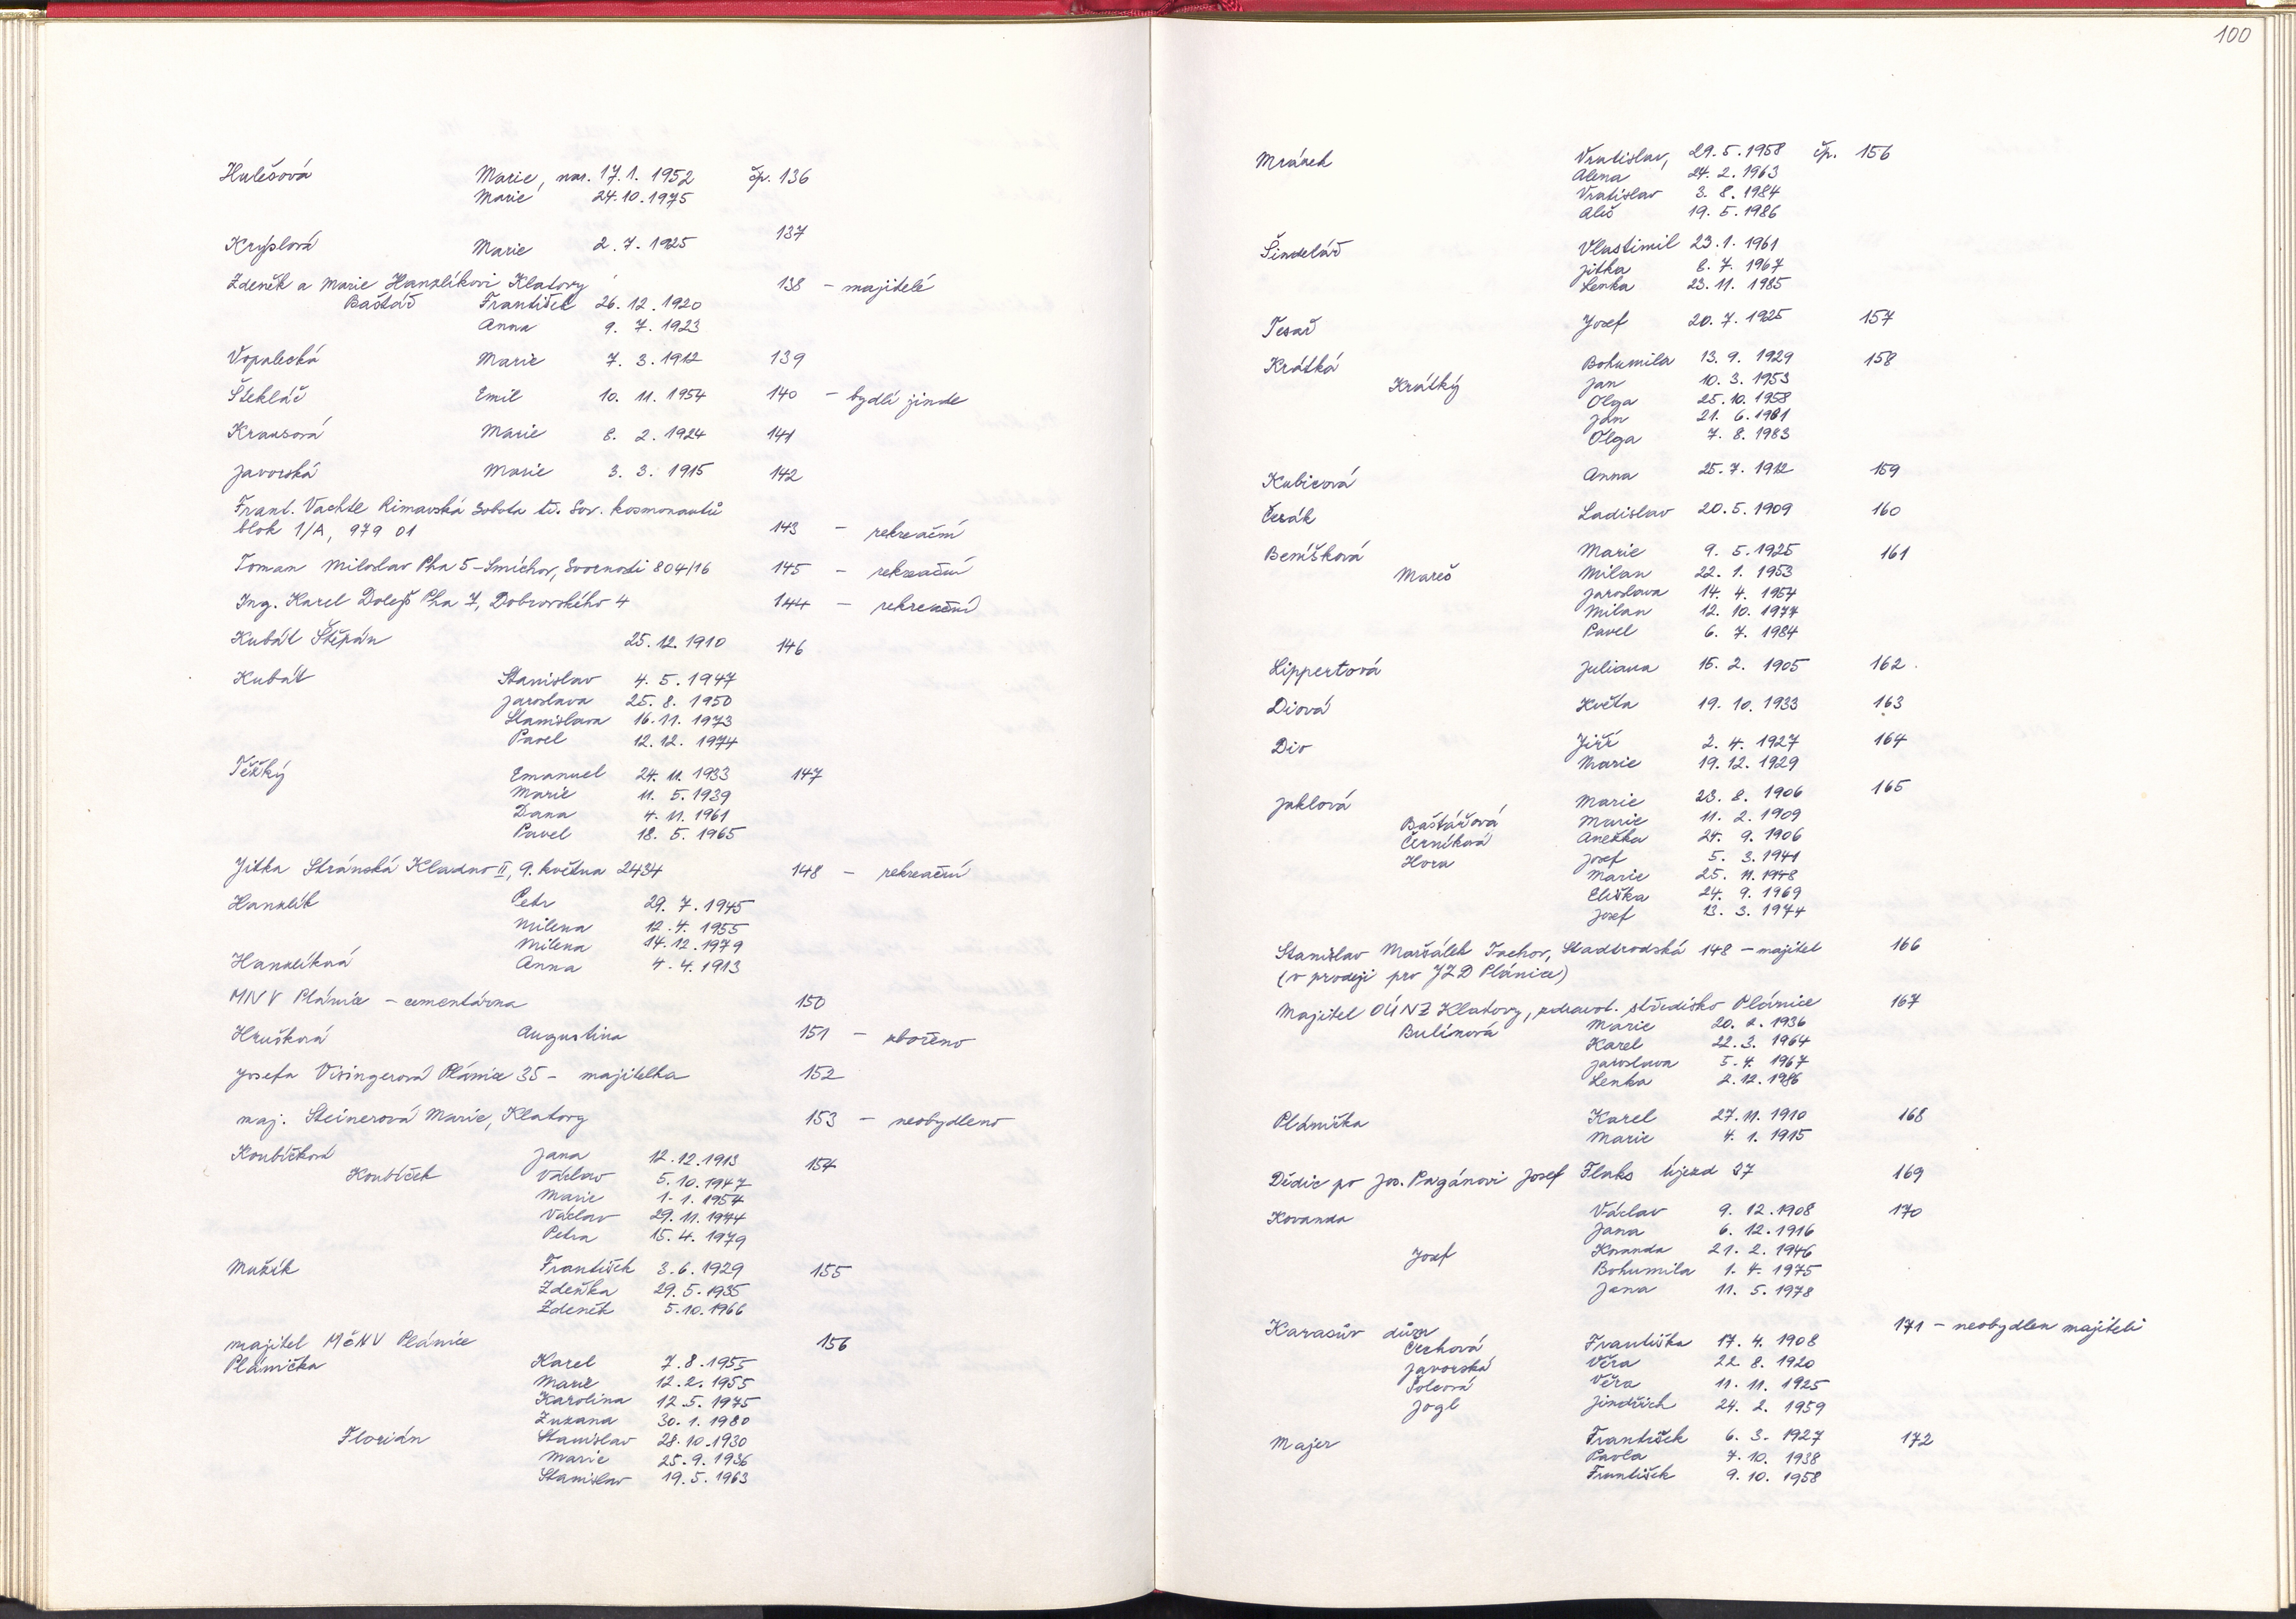 Hulešová Marie, nar. 17.1. 1952 čp. 136
Marie 24.10.1975
Kryplová Marie 2.7.1925 137
Zdeněk a Marie Hanzlíkovi Klatovy 138 - majitelé
Baštář František 26.12.1920
Anna 9.7.1923
Vopalecká Marie 7.3.1912 139
Štekláč Emil 10.11.1954 140 - bydlí jinde
Krausová Marie 8.2.1924 141
Javorská Marie 3.3.1915 142
Frant. Vachtl Rimavská Sobota tř. Sov. kosmonautů
blok 1/A, 979 01 143 - rekreační
Toman Miloslav Pha 5 - Smíchov, Svornosti 804/16 145 - rekreační
Ing. Karel Dolejš Pha 7, Dobrovského 4 144 - rekreační
Kubát Štěpán 25.12.1910 146
Kubát Stanislav 4.5.1947
Jaroslava 25.8.1950
Stanislava 16.11.1973
Pavel 12.12.1974
Těžký Emanuel 24.11.1933 147
Marie 11.5.1939
Dana 4.11.1961
Pavel 18.5.1965
Jitka Stránská Kladno II, 9. května 2434 148 - rekreační
Hanzlík Petr 29.7.1945
Milena 12.4.1955
Milena 14.12.1979
Hanzlíková Anna 4.4.1913
MNV Plánice - cementárna 150
Hrušková Augustina 151 - zbořeno
Josefa Visingerová Plánice 35 - majitelka 152
maj. Steinerová Marie, Klatovy 153 - neobydleno
Koubíčková Jana 12.12.1913 154
Koubíček Václav 5.10.1947
Marie 1.1.1954
Václav 29.11.1974
Petra 15.4.1979
Mužík František 3.6.1929 155
Zdeňka 29.5.1935
Zdeněk 5.10.1966
majitel MěNV Plánice 156
Plánička Karel 7.8.1955
Marie 12.2.1955
Karolina 12.5.1975
Zuzana 30.1.1980
Florián Stanislav 28.10.1930
Marie 25.9.1936
Stanislav 19.5.1963
100
Mrázek Vratislav, 29.5.1958 čp. 156
Alena 24.2.1963
Vratislav 3.8.1984
Aleš 19.5.1986
Šindelář Vlastimil 23.1.1961
Jitka 8.7.1967
Lenka 23.11.1985
Tesař Josef 20.7.1925 157
Krátká Bohumila 13.9.1929 158
Krátký Jan 10.3.1953
Olga 25.10.1958
Jan 21.6.1981
Olga 7.8.1983
Kubicová Anna 25.7.1912 159
Čezák Ladislav 20.5.1909 160
Benišková Marie 9.5.1925 161
Mareš Milan 22.1.1953
Jaroslava 14.4.1957
Milan 12.10.1977
Pavel 6.7.1984
Lippertová Juliana 15.2.1905 162
Diová Květa 19.10.1933 163
Div Jiří 2.4.1927 164
Marie 19.12.1929
Jaklová Marie 23.8.1906 165
Baštářová Marie 11.2.1909
Černíková Anežka 24.9.1906
Hora Josef 5.3.1941
Marie 25.11.1948
Eliška 24.9.1969
Josef 13.3.1974
Stanislav Maršálek Tachov, Stadtrodská 148 - majitel 166
(v prodeji pro JZD Plánice)
Majitel OÚNZ Klatovy, zdravot. středisko Plánice 167
Bulínová Marie 20.2.1936
Karel 22.3.1964
Jaroslava 5.4.1967
Lenka 2.12.1986
Plánička Karel 27.11.1910 168
Marie 4.1.1915
Dědic po Jos. Pagánovi Josef Flaks Újezd 37 169
Kovanda Václav 9.12.1908 170
Jana 6.12.1916
Josef Kovanda 21.2.1946
Bohumila 1.4.1975
Jana 11.5.1978
Karasův dům 171 - neobydlen majiteli
Čechová Františka 17.4.1908
Javorská Věra 22.8.1920
Šolcová Věra 11.11.1925
Jogl Jindřich 24.2.1959
Majer František 6.3.1927 172
Pavla 7.10.1938
František 9.10.1958